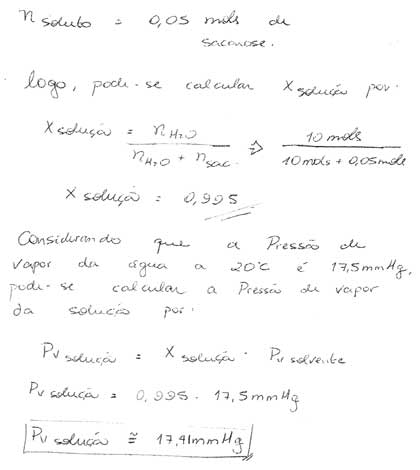 n soluto = 0,05 mols de
sacarose.
logo, pode-se calcular X solução por:
X solução = nH2O / nH2O + nsac. => 10 mols / 10 mols + 0,05 mols
X solução = 0,995
Considerando que a Pressão de
vapor da água a 20°C é 17,5 mmHg,
pode-se calcular a Pressão de vapor
da solução por:
Pv solução = X solução . Pv solvente
Pv solução = 0,995 . 17,5 mmHg
Pv solução ≅ 17,41 mmHg